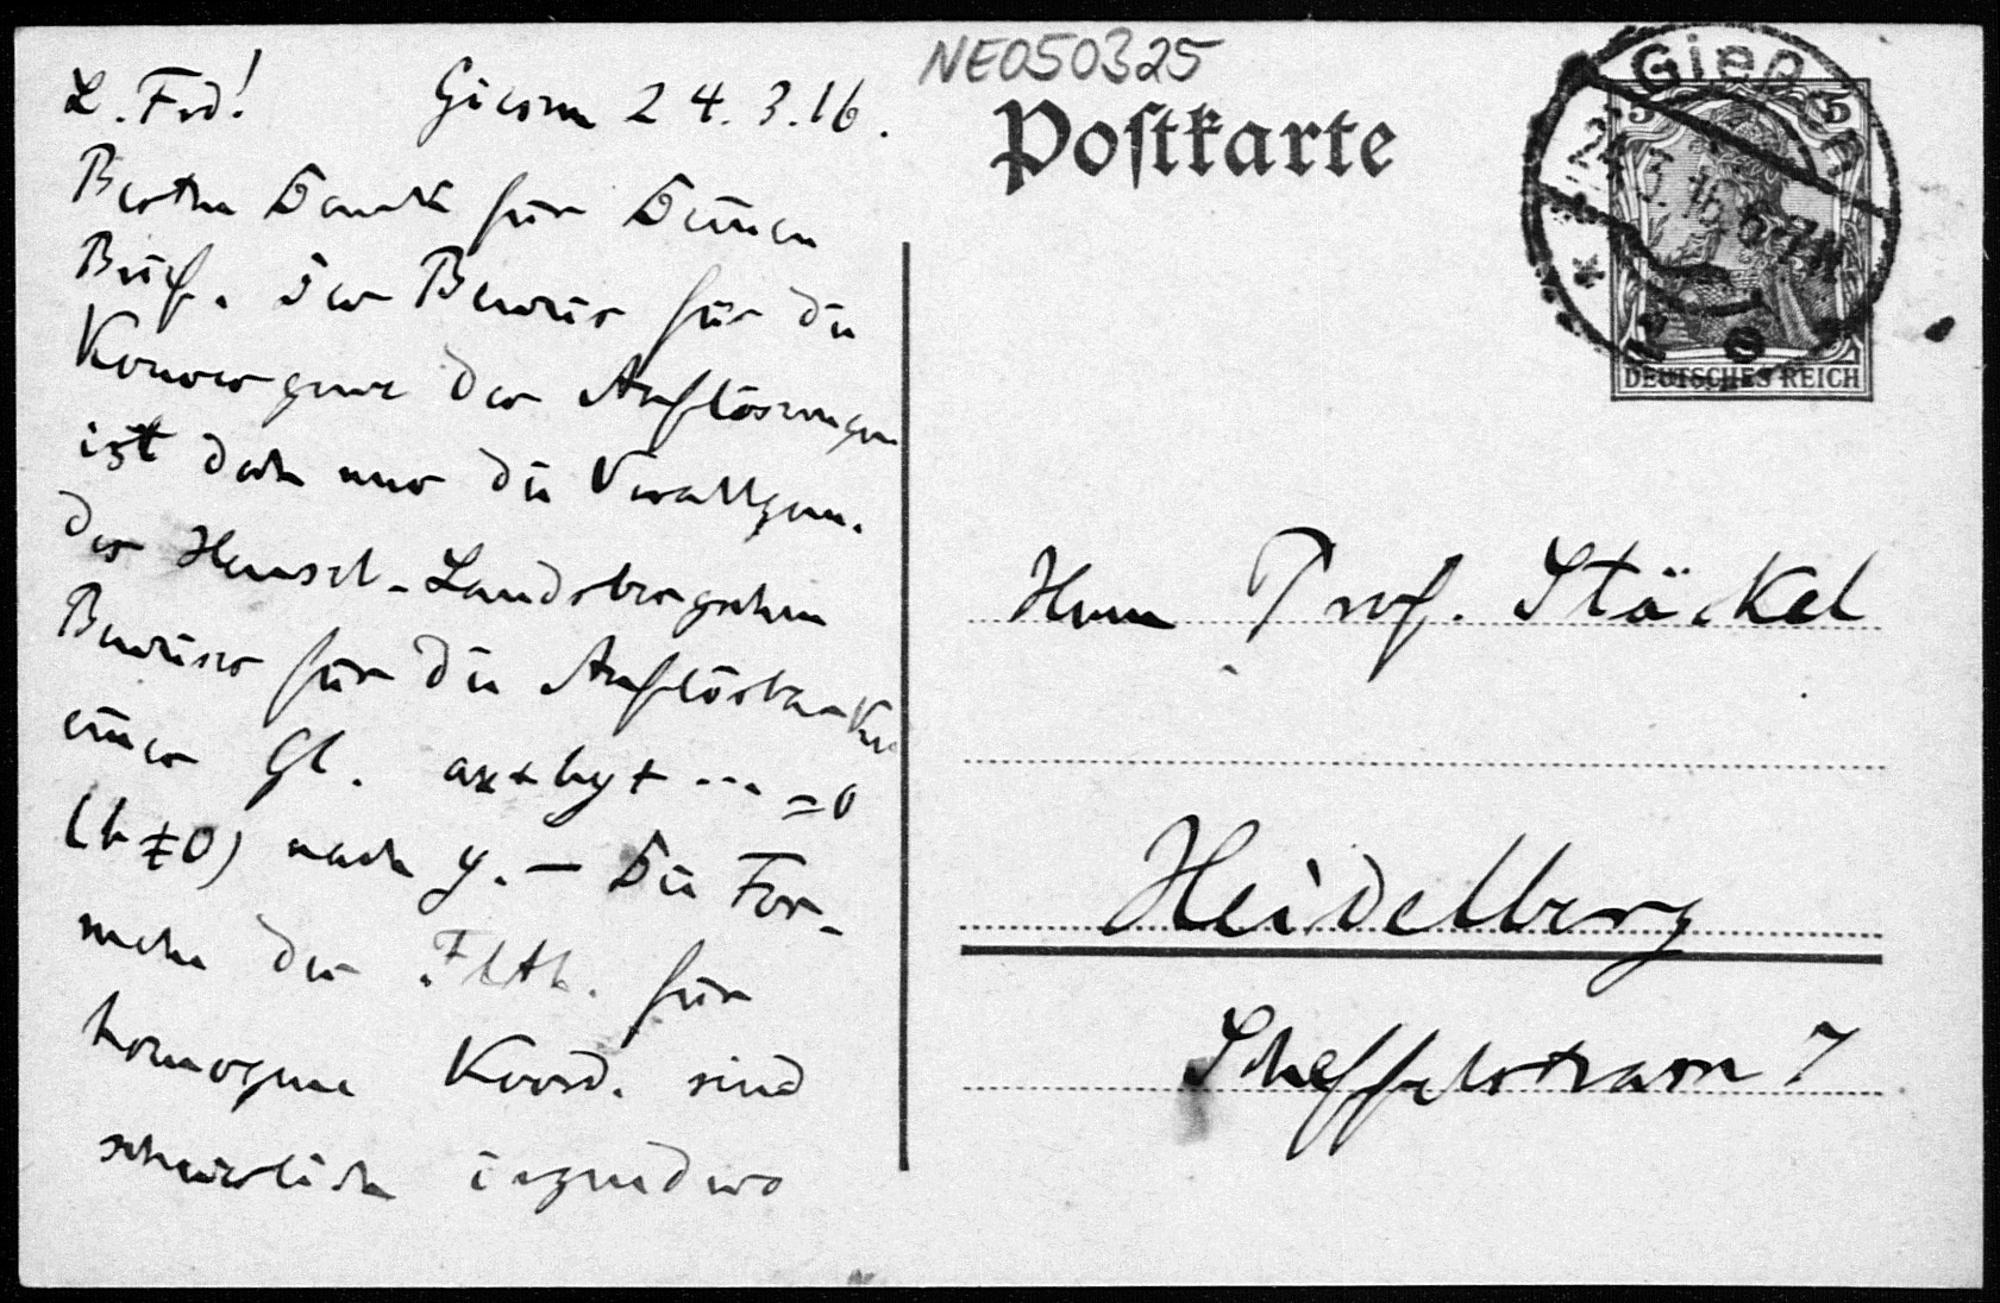 L. Frd! Giessen 24.3.16.
Besten Dank für Deinen
Brief. Der Beweis für die
Konvergenz der Auflösungen
ist doch nur die Verallgem.
des Hensel-Landsbergschen
Beweises für die Auflösbarkeit
einer Gl. ax+by+ ... =0
(b≠0) nach y. – Die For-
meln der Flth. für
homogene Koord. sind
schwerlich irgendwo
NE050325
Postkarte
Giessen
24.3.16. 6-7N
5 5
DEUTSCHES REICH
Herrn Prof. Stäckel
Heidelberg
Scheffelstrasse 7